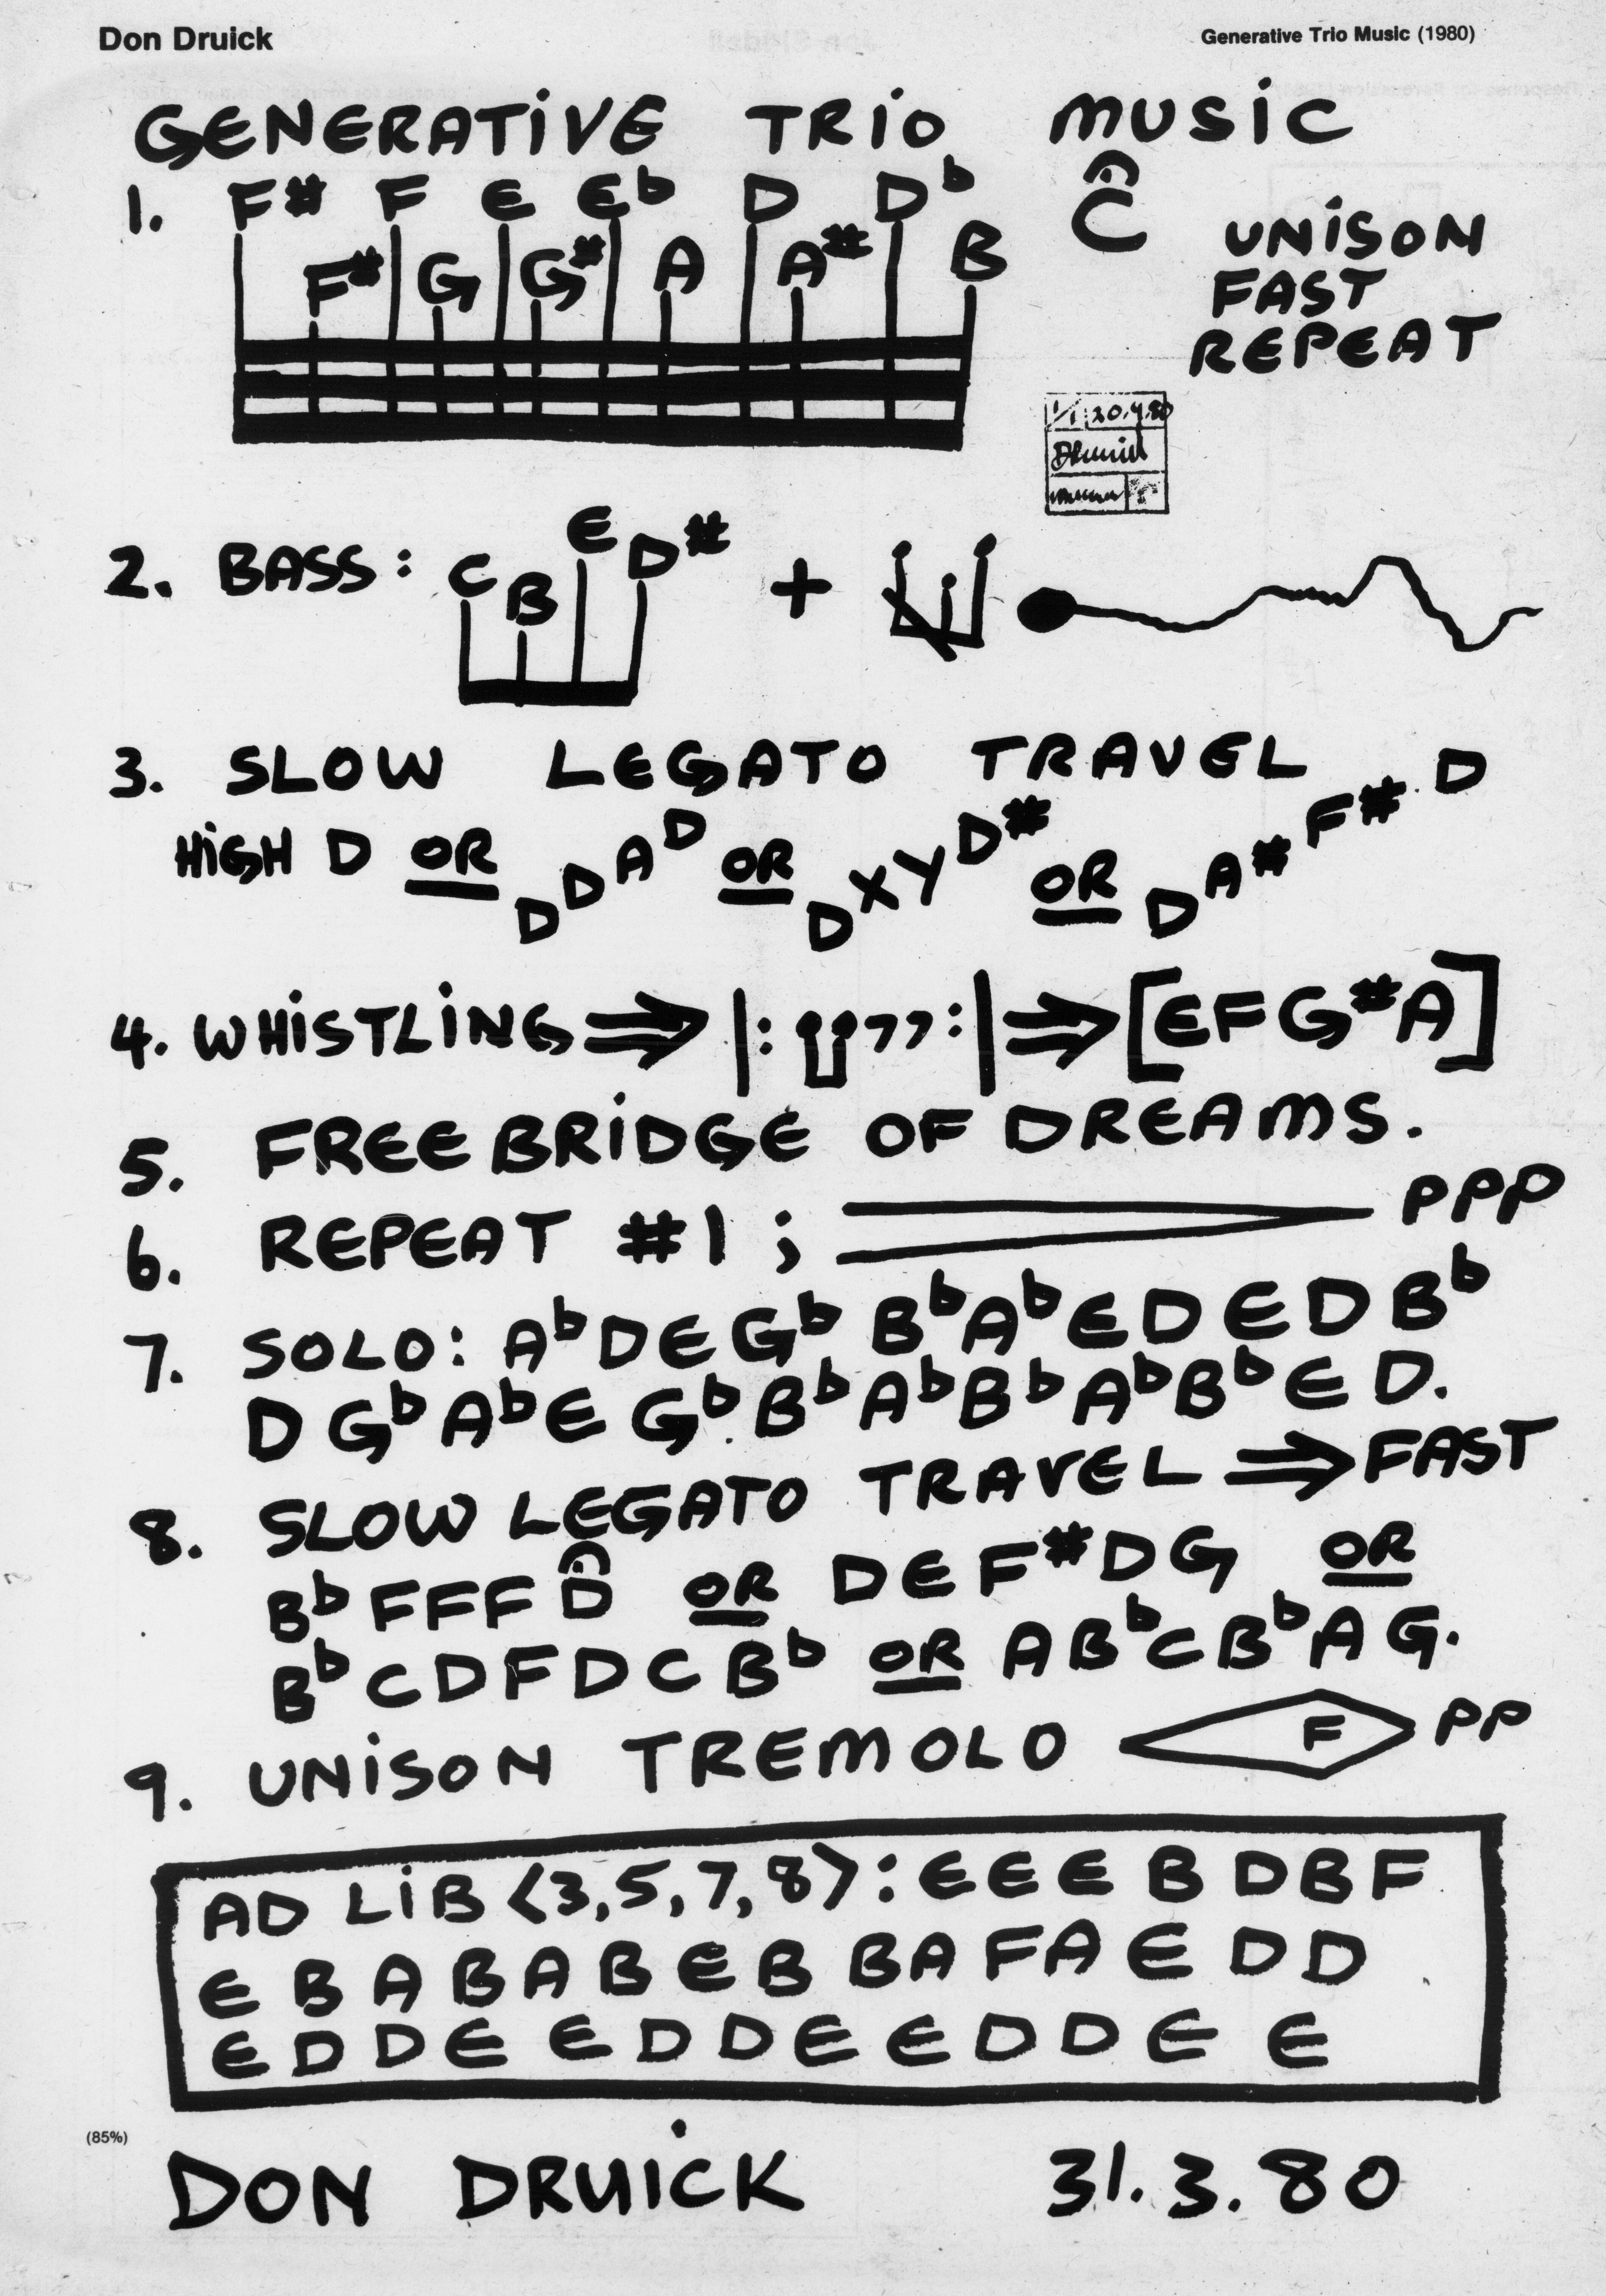 Don Druick
Generative Trio Music (1980)
GENERATiVE TRiO MUSiC
1. F# F E Eb D Db C UNiSON
F# G G# A A# B FAST
REPEAT
1/1 20.4.80
2. BASS: C B E D# +
3. SLOW LEGATO TRAVEL
HiGH D OR D D A D OR D X Y D# OR D A# F# D
4. WHiSTLiNG ⇒ |: ,, :| ⇒ [E F G# A]
5. FREE BRiDGE OF DREAMS.
6. REPEAT #1 ; PPP
7. SOLO: Ab D E Gb Bb Ab E D E D Bb
D Gb Ab E Gb Bb Ab Bb Ab Bb E D.
8. SLOW LEGATO TRAVEL ⇒ FAST
Bb F F F D OR D E F# D G OR
Bb C D F D C Bb OR A Bb C Bb A G.
9. UNiSON TREMOLO F PP
AD LiB <3,5,7,8>: E E E B D B F
E B A B A B E B B A F A E D D
E D D E E D D E E D D E E
(85%)
DON DRUiCK 31.3.80